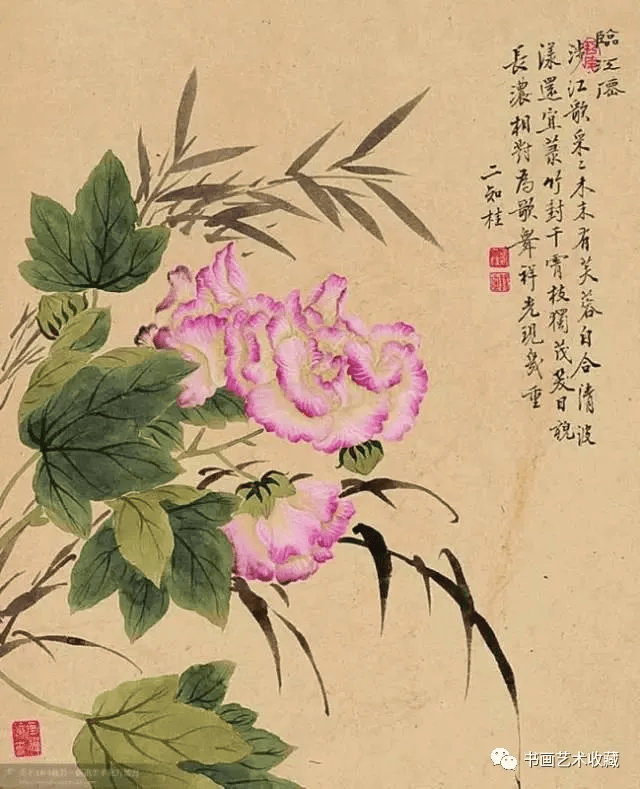 臨江僊
涉江歌采〻木末有芙蓉自合清波
漾還宜菉竹封干霄枝獨茂炙日貌
長濃相對為歌祥光現幾重
二知桂
书画艺术收藏